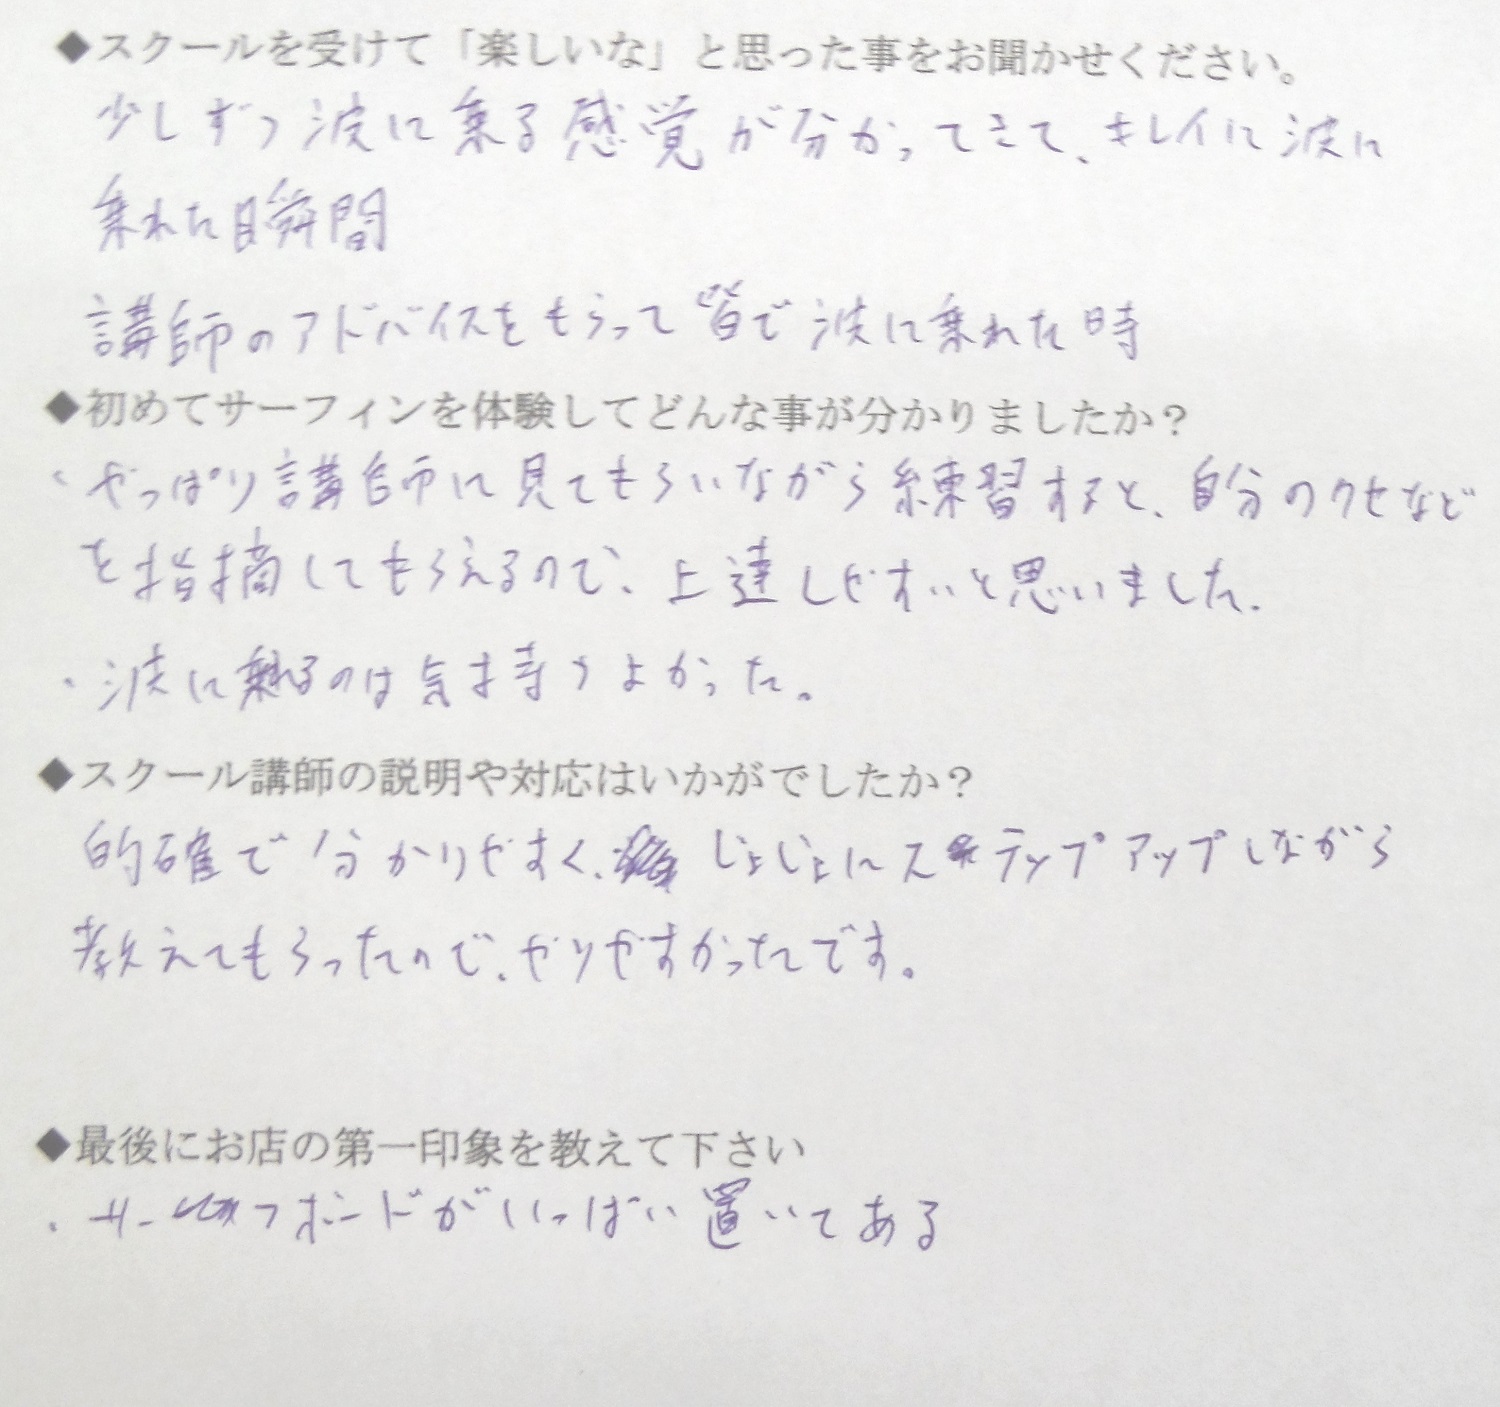 ◆スクールを受けて「楽しいな」と思った事をお聞かせください。
少しずつ波に乗る感覚が分かってきて、キレイに波に
乗れた瞬間
講師のアドバイスをもらって皆で波に乗れた時
◆初めてサーフィンを体験してどんな事が分かりましたか？
・やっぱり講師に見てもらいながら練習すると、自分のクセなど
を指摘してもらえるので、上達しやすいと思いました。
・波に乗るのは気持ちよかった。
◆スクール講師の説明や対応はいかがでしたか？
的確で分かりやすく、じょじょにステップアップしながら
教えてもらったので、やりやすかったです。
◆最後にお店の第一印象を教えて下さい
・サーフボードがいっぱい置いてある